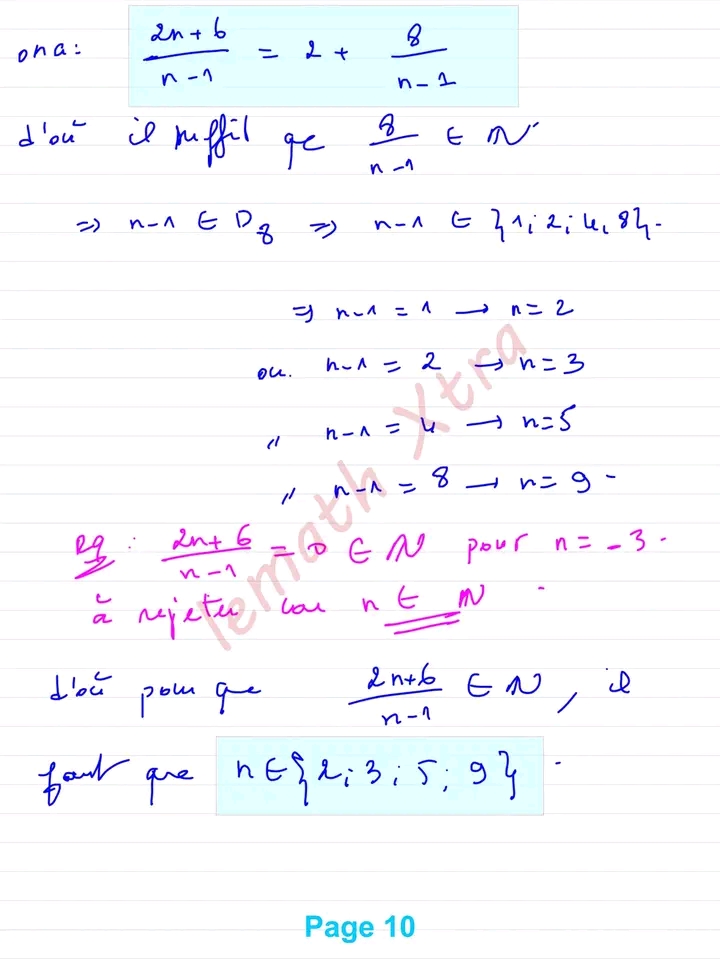 ona: (2n+6)/(n-1) = 2 + 8/(n-1)
d'où il suffit que 8/(n-1) ∈ N
⇒ n-1 ∈ D₈ ⇒ n-1 ∈ {1; 2; 4, 8}.
⇒ n-1 = 1 → n = 2
ou. n-1 = 2 → n = 3
,, n-1 = 4 → n = 5
,, n-1 = 8 → n = 9 -
Rq : (2n+6)/(n-1) = 0 ∈ N pour n = -3.
à rejeter car n ∈ N.
d'où pour que (2n+6)/(n-1) ∈ N, il
faut que n ∈ {2; 3; 5; 9}.
lemath Xtra
Page 10